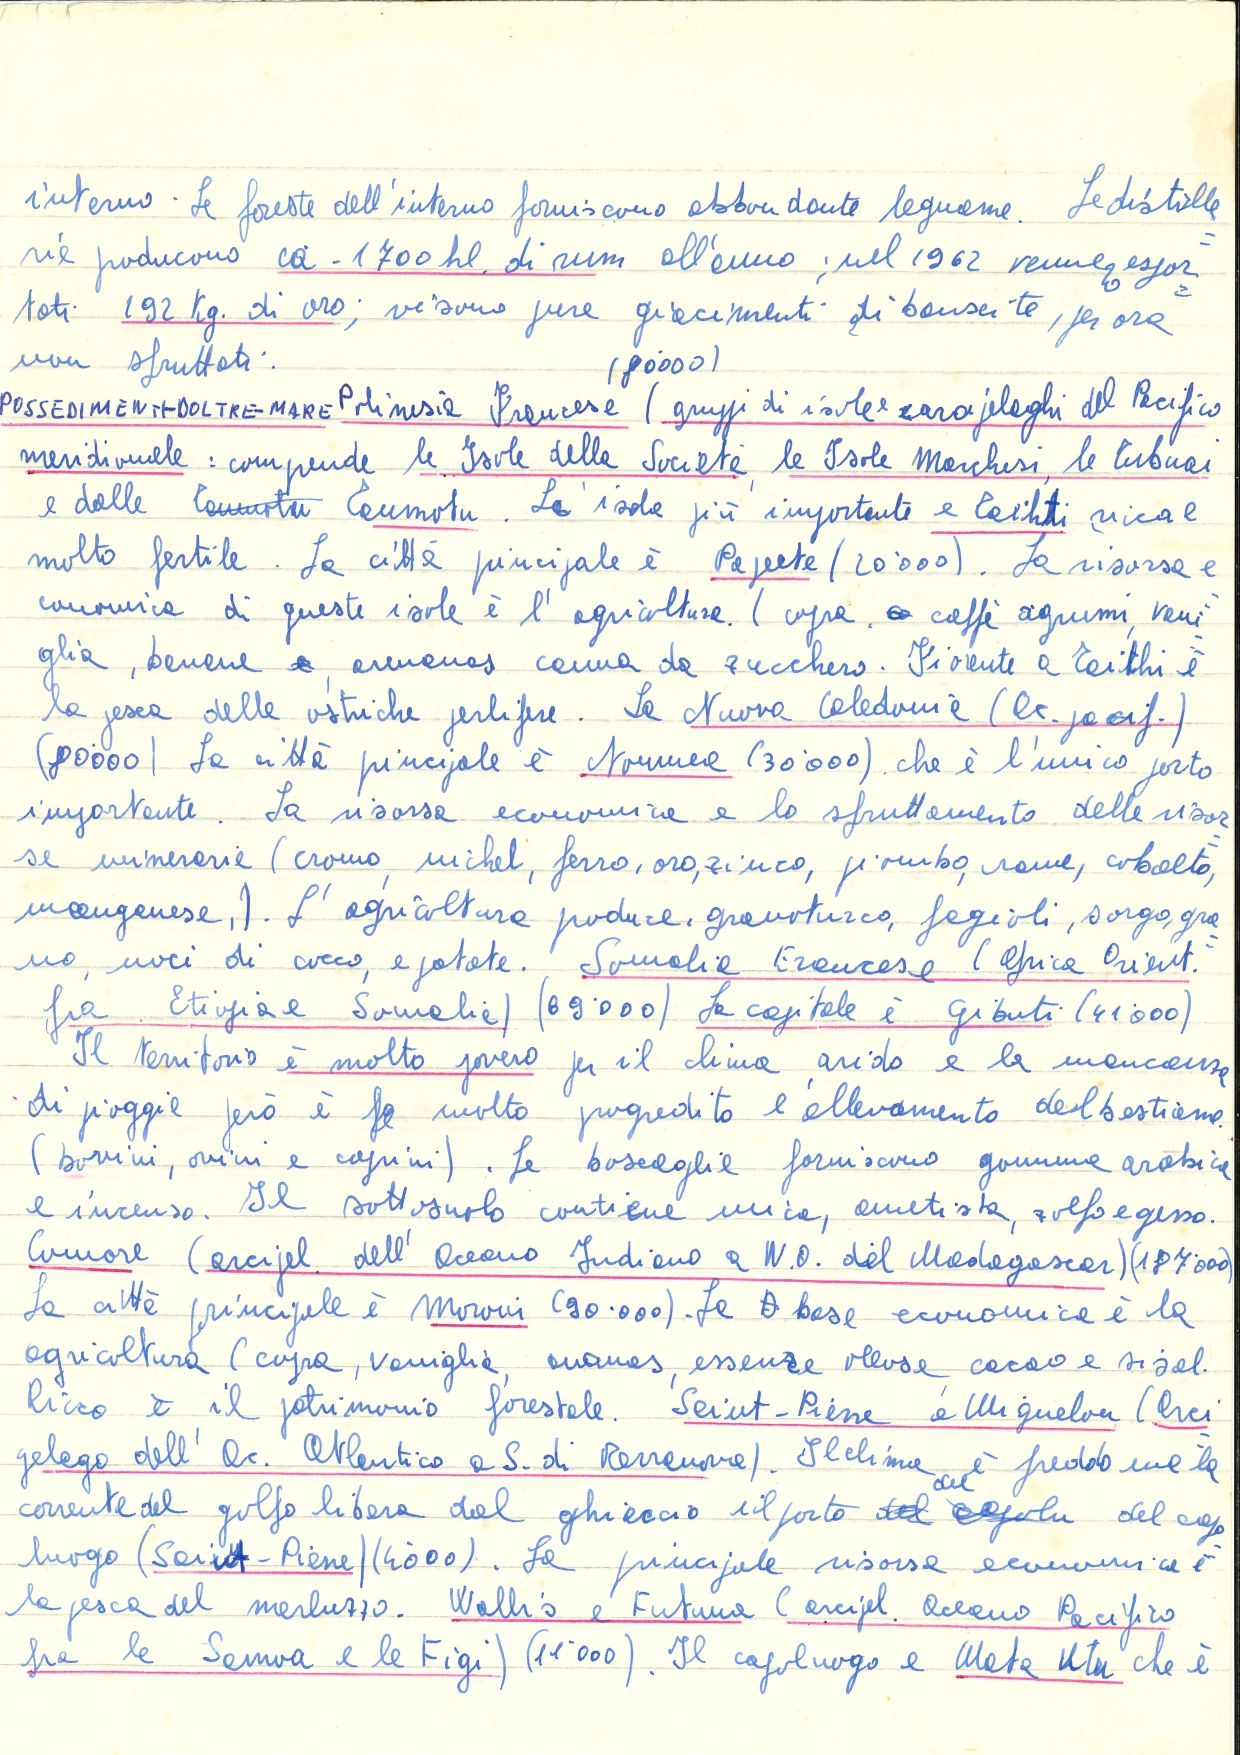 interno. Le foreste dell'interno forniscono abbondante legname. Le distille=
rie producono ca - 1700 hl. di rum all'anno; nel 1962 vennero espor=
tati 192 Kg. di oro; vi sono pure giacimenti di bauscite, per ora
non sfruttati.
(80'000)
POSSEDIMENTI-DOLTRE-MARE Polinesia Francese (gruppi di isole e arcipelaghi del Pacifico
meridionale: comprende le Isole della Società, le Isole Marchesi, le Tubuai
e dalle Taumotu Taumotu. La isola più importante e Taihti ricca e
molto fertile. La città principale è Papete (20'000). La risorsa e
conomica di queste isole è l'agricoltura. (copra, caffè agrumi, vani=
glia, banane, ananas canna da zucchero. Fiorente a Taithi è
la pesca delle ostriche perlifere. La Nuova Caledonia (Oc. pacif.)
(80'000) La città principale è Noumea (30'000) che è l'unico porto
importante. La risorsa economica e lo sfruttamento delle risor=
se minerarie (cromo, nichel, ferro, oro, zinco, piombo, rame, cobalto,
manganese,). L'agricoltura produce, granoturco, fagioli, sorgo, gra=
no, noci di cocco, e patate. Somalia Francese (Africa Orient.
fra Etiopia e Somalia) (69'000) La capitale è Gibuti (41'000)
Il territorio è molto povero per il clima arido e la mancanza
di pioggie però è molto progredito l'allevamento del bestiame.
(bovini, ovini e caprini). Le boscaglie forniscono gomma arabica
e incenso. Il sottosuolo contiene mica, ametista, zolfo e gesso.
Comore (arcipel. dell'Oceano Indiano a N.O. del Madagascar) (187'000)
La città principale è Moroni (90.000). La base economica è la
agricoltura (copra, vaniglia, ananas, essenze oleose cacao e sisal.
Ricco è il patrimonio forestale. Saint-Pierre e Miguelon (Arci=
pelago dell'Oc. Atlantico a S. di Terranova). Il clima è freddo ma la
corrente del golfo libera dal ghiaccio il porto del del capo
luogo (Saint-Pierre) (4000). La principale risorsa economica è
la pesca del merluzzo. Wallis e Futuna (arcipel. Oceano Pacifico
fra le Samoa e le Figi) (11'000). Il capoluogo e Mata Utu che è